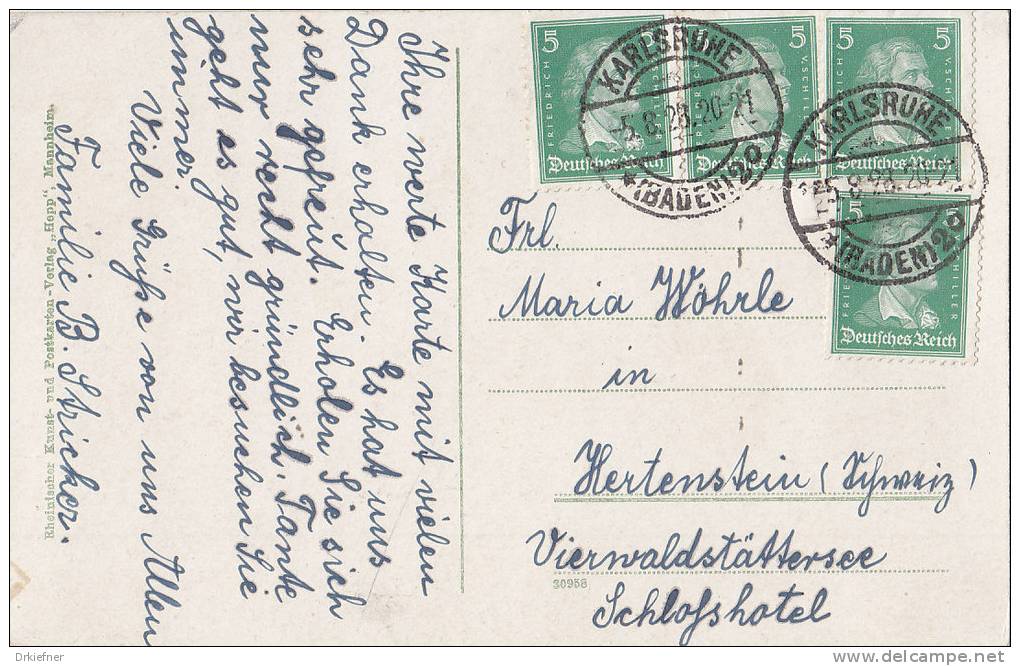 Ihre werte Karte mit vielen
Dank erhalten. Es hat uns
sehr gefreut. Erholen Sie sich
nur recht gründlich. Tante
geht es gut, wir besuchen Sie
immer.
Viele Grüße von uns Allen
Familie B. Stricker.
Rheinischer Kunst- und Postkarten-Verlag „Hepp“, Mannheim.
5
5
5
FRIEDRICH
V. SCHILLER
Deutsches Reich
Deutsches Reich
Deutsches Reich
KARLSRUHE
-5.8.28.20-21
* (BADEN) 2 *
KARLSRUHE
-5.8.28.20-21
* (BADEN) 2 *
5
5
Deutsches Reich
Frl.
Maria Wöhrle
in
Hertenstein (Schweiz)
Vierwaldstättersee
30958
Schloßhotel
Drkiefner
www.delcampe.net